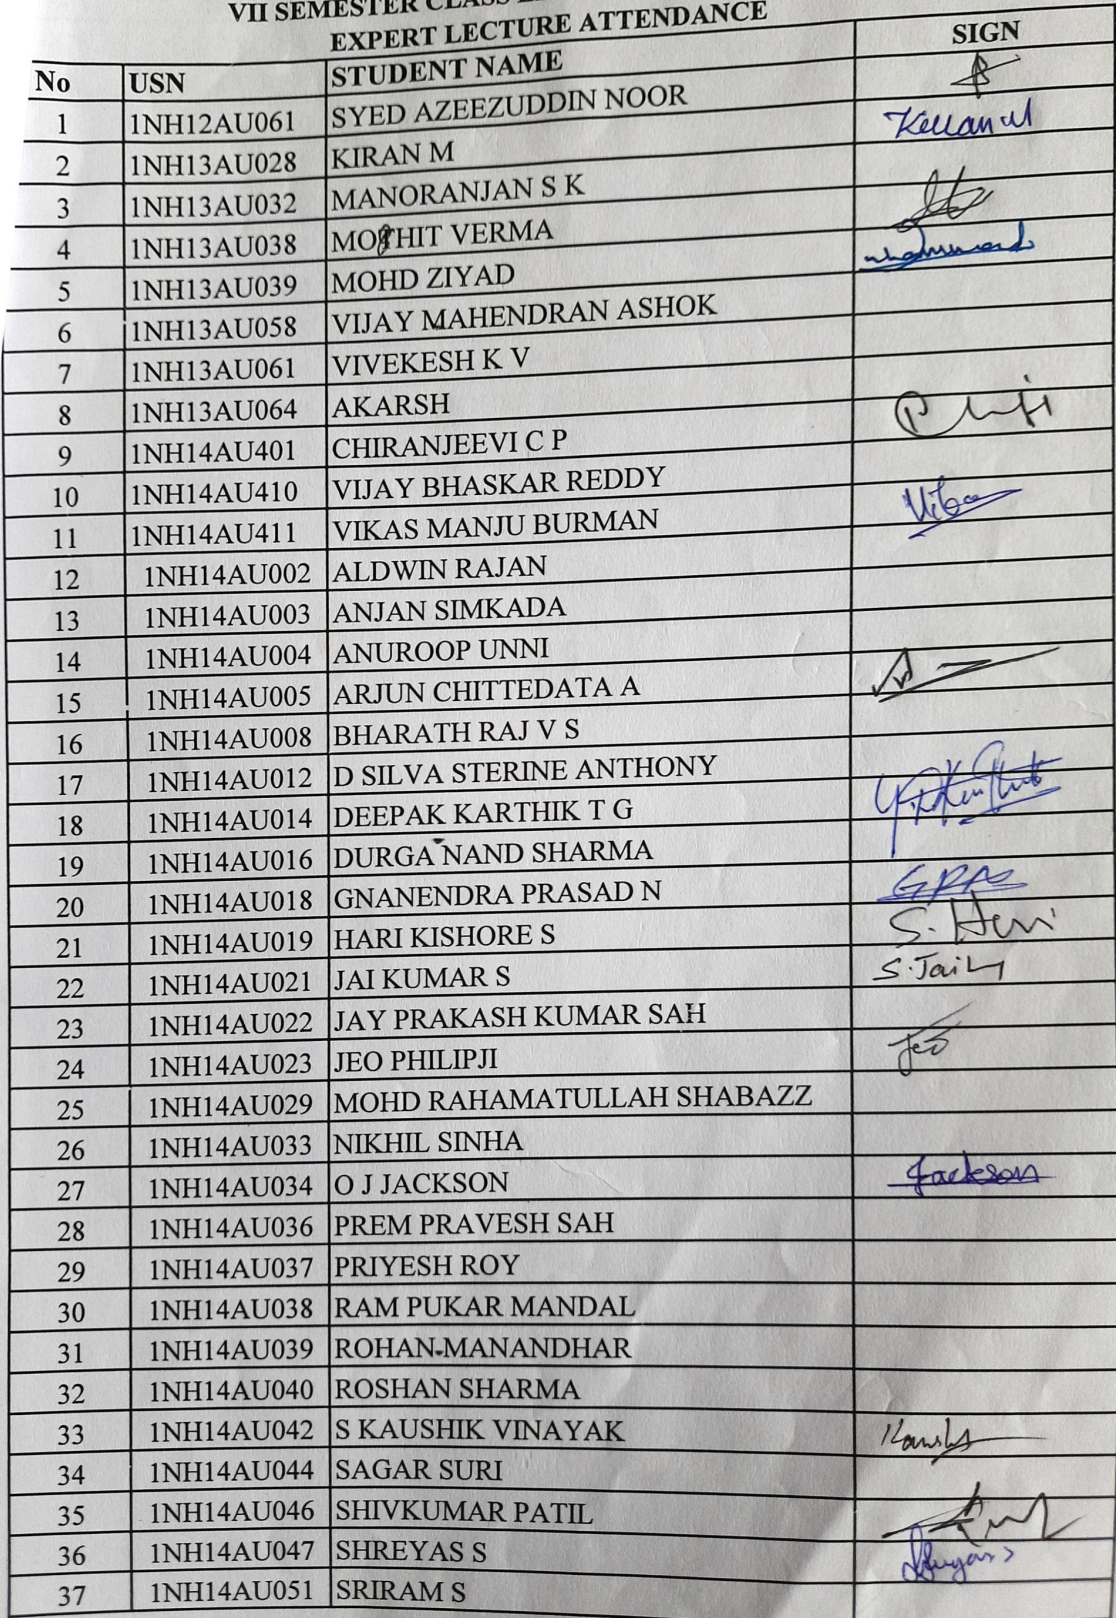 VII SEMESTER CLASS
EXPERT LECTURE ATTENDANCE
No USN STUDENT NAME SIGN
1 1NH12AU061 SYED AZEEZUDDIN NOOR
2 1NH13AU028 KIRAN M
3 1NH13AU032 MANORANJAN S K
4 1NH13AU038 MOTHIT VERMA
5 1NH13AU039 MOHD ZIYAD
6 1NH13AU058 VIJAY MAHENDRAN ASHOK
7 1NH13AU061 VIVEKESH K V
8 1NH13AU064 AKARSH
9 1NH14AU401 CHIRANJEEVI C P
10 1NH14AU410 VIJAY BHASKAR REDDY
11 1NH14AU411 VIKAS MANJU BURMAN
12 1NH14AU002 ALDWIN RAJAN
13 1NH14AU003 ANJAN SIMKADA
14 1NH14AU004 ANUROOP UNNI
15 1NH14AU005 ARJUN CHITTEDATA A
16 1NH14AU008 BHARATH RAJ V S
17 1NH14AU012 D SILVA STERINE ANTHONY
18 1NH14AU014 DEEPAK KARTHIK T G
19 1NH14AU016 DURGA NAND SHARMA
20 1NH14AU018 GNANENDRA PRASAD N
21 1NH14AU019 HARI KISHORE S S. Hari
22 1NH14AU021 JAI KUMAR S S. Jai
23 1NH14AU022 JAY PRAKASH KUMAR SAH
24 1NH14AU023 JEO PHILIPJI Jeo
25 1NH14AU029 MOHD RAHAMATULLAH SHABAZZ
26 1NH14AU033 NIKHIL SINHA
27 1NH14AU034 O J JACKSON Jackson
28 1NH14AU036 PREM PRAVESH SAH
29 1NH14AU037 PRIYESH ROY
30 1NH14AU038 RAM PUKAR MANDAL
31 1NH14AU039 ROHAN MANANDHAR
32 1NH14AU040 ROSHAN SHARMA
33 1NH14AU042 S KAUSHIK VINAYAK
34 1NH14AU044 SAGAR SURI
35 1NH14AU046 SHIVKUMAR PATIL
36 1NH14AU047 SHREYAS S
37 1NH14AU051 SRIRAM S